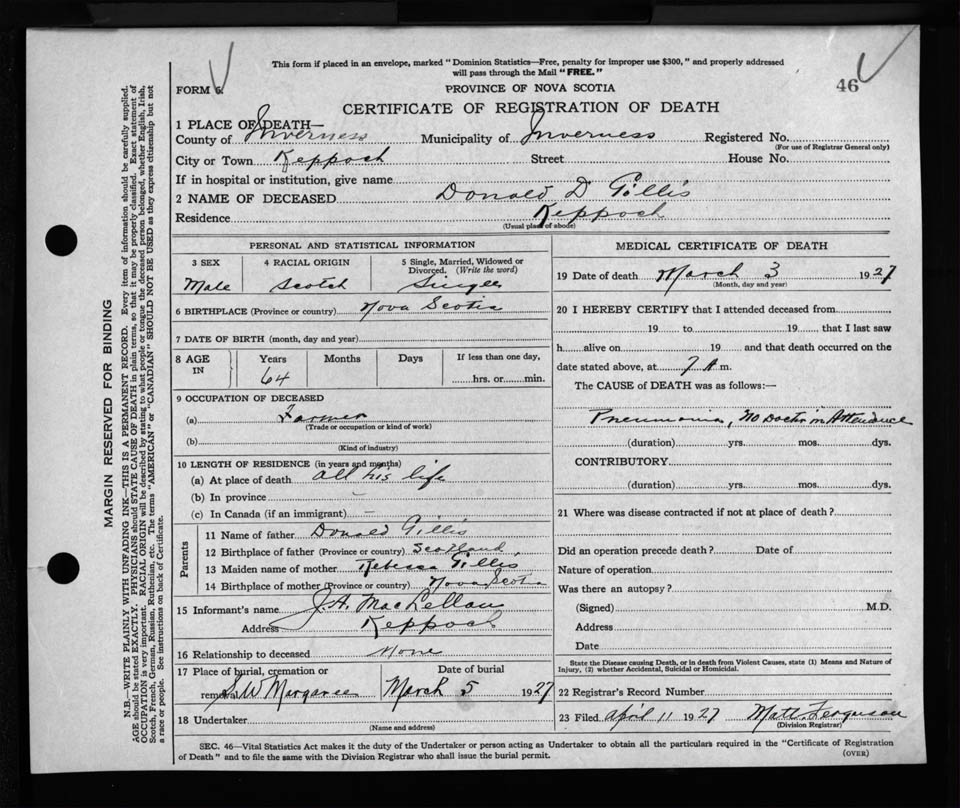 This form if placed in an envelope, marked "Dominion Statistics—Free, penalty for improper use $300," and properly addressed
will pass through the Mail "FREE."
46
FORM 6.
PROVINCE OF NOVA SCOTIA
CERTIFICATE OF REGISTRATION OF DEATH
1 PLACE OF DEATH—
County of Inverness Municipality of Inverness Registered No.
(For use of Registrar General only)
City or Town Keppoch Street House No.
If in hospital or institution, give name
2 NAME OF DECEASED Donald D Gillis
Residence Keppoch
(Usual place of abode)
PERSONAL AND STATISTICAL INFORMATION
3 SEX 4 RACIAL ORIGIN 5 Single, Married, Widowed or
Divorced. (Write the word)
Male Scotch Single
6 BIRTHPLACE (Province or country) Nova Scotia
7 DATE OF BIRTH (month, day and year)
8 AGE IN Years Months Days If less than one day,
64 hrs. or min.
9 OCCUPATION OF DECEASED
(a) Farmer
(Trade or occupation or kind of work)
(b)
(Kind of industry)
10 LENGTH OF RESIDENCE (in years and months)
(a) At place of death all his life
(b) In province –
(c) In Canada (if an immigrant) –
Parents
11 Name of father Donald Gillis
12 Birthplace of father (Province or country) Scotland
13 Maiden name of mother Rebecca Gillis
14 Birthplace of mother (Province or country) Nova Scotia
15 Informant's name J.A. MacLellan
Address Keppoch
16 Relationship to deceased None
17 Place of burial, cremation or Date of burial
removal S.W Margaree March 5 1927
18 Undertaker
(Name and address)
MEDICAL CERTIFICATE OF DEATH
19 Date of death March 3 1927
(Month, day and year)
20 I HEREBY CERTIFY that I attended deceased from
19 to 19 that I last saw
h alive on 19 and that death occurred on the
date stated above, at 7 A m.
The CAUSE of DEATH was as follows:—
Pneumonia, no Doctor in Attendance
(duration) yrs. mos. dys.
CONTRIBUTORY
(duration) yrs. mos. dys.
21 Where was disease contracted if not at place of death?
Did an operation precede death? Date of
Nature of operation
Was there an autopsy?
(Signed) M.D.
Address
Date
State the Disease causing Death, or in death from Violent Causes, state (1) Means and Nature of
Injury, (2) whether Accidental, Suicidal or Homicidal.
22 Registrar's Record Number
23 Filed April 11 1927 Matt. Ferguson
(Division Registrar)
SEC. 46—Vital Statistics Act makes it the duty of the Undertaker or person acting as Undertaker to obtain all the particulars required in the "Certificate of Registration
of Death" and to file the same with the Division Registrar who shall issue the burial permit. (OVER)
MARGIN RESERVED FOR BINDING
N.B.—WRITE PLAINLY WITH UNFADING INK—THIS IS A PERMANENT RECORD. Every item of information should be carefully supplied.
AGE should be stated EXACTLY. PHYSICIANS should STATE CAUSE OF DEATH in plain terms, so that it may be properly classified. Exact statement of
OCCUPATION is very important. RACIAL ORIGIN will be described by stating to what people or tongue the deceased person belonged, whether English, Irish,
Scotch, French, German, Russian, Ruthenian, etc. The terms "AMERICAN" or "CANADIAN" SHOULD NOT BE USED as they express citizenship but not
a race or people. See instructions on back of Certificate.